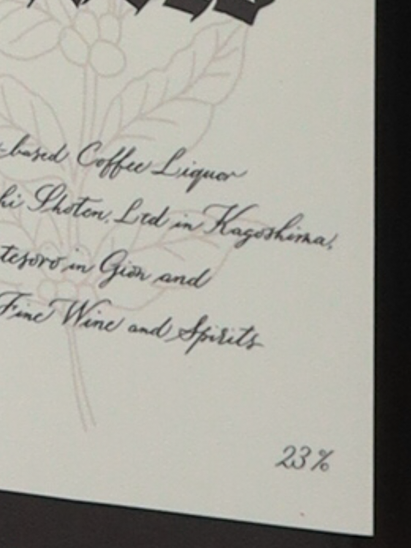 -based Coffee Liquor
hi Shoten, Ltd in Kagoshima,
tesoro in Gion and
Fine Wine and Spirits
23%